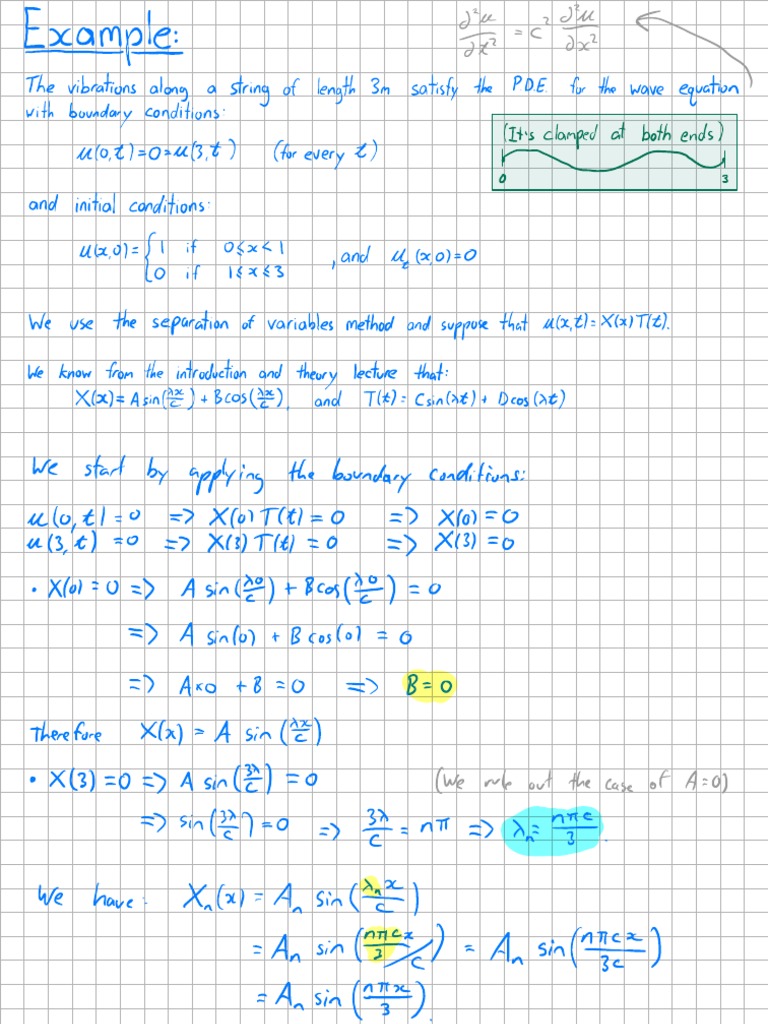 Example:
∂²u/∂t² = c² ∂²u/∂x²
The vibrations along a string of length 3m satisfy the P.D.E. for the wave equation
with boundary conditions:
u(0,t)=0=u(3,t) (for every t)
(It's clamped at both ends)
0 3
and initial conditions:
u(x,0) = { 1 if 0≤x<1
0 if 1≤x≤3 , and u_t(x,0)=0
We use the separation of variables method and suppose that u(x,t)=X(x)T(t).
We know from the introduction and theory lecture that:
X(x)=A sin(λx/c) + B cos(λx/c), and T(t)= C sin(λt) + D cos(λt)
We start by applying the boundary conditions:
u(0,t)=0 => X(0)T(t)=0 => X(0)=0
u(3,t)=0 => X(3)T(t)=0 => X(3)=0
• X(0)=0 => A sin(λ0/c) + B cos(λ0/c) = 0
=> A sin(0) + B cos(0) = 0
=> A×0 + B = 0 => B = 0
Therefore X(x) = A sin(λx/c)
• X(3)=0 => A sin(3λ/c) = 0 (We rule out the case of A=0)
=> sin(3λ/c)=0 => 3λ/c = nπ => λ_n = nπc/3.
We have: X_n(x) = A_n sin(λ_n x/c)
= A_n sin(nπcx/3 / c) = A_n sin(nπcx/3c)
= A_n sin(nπx/3).